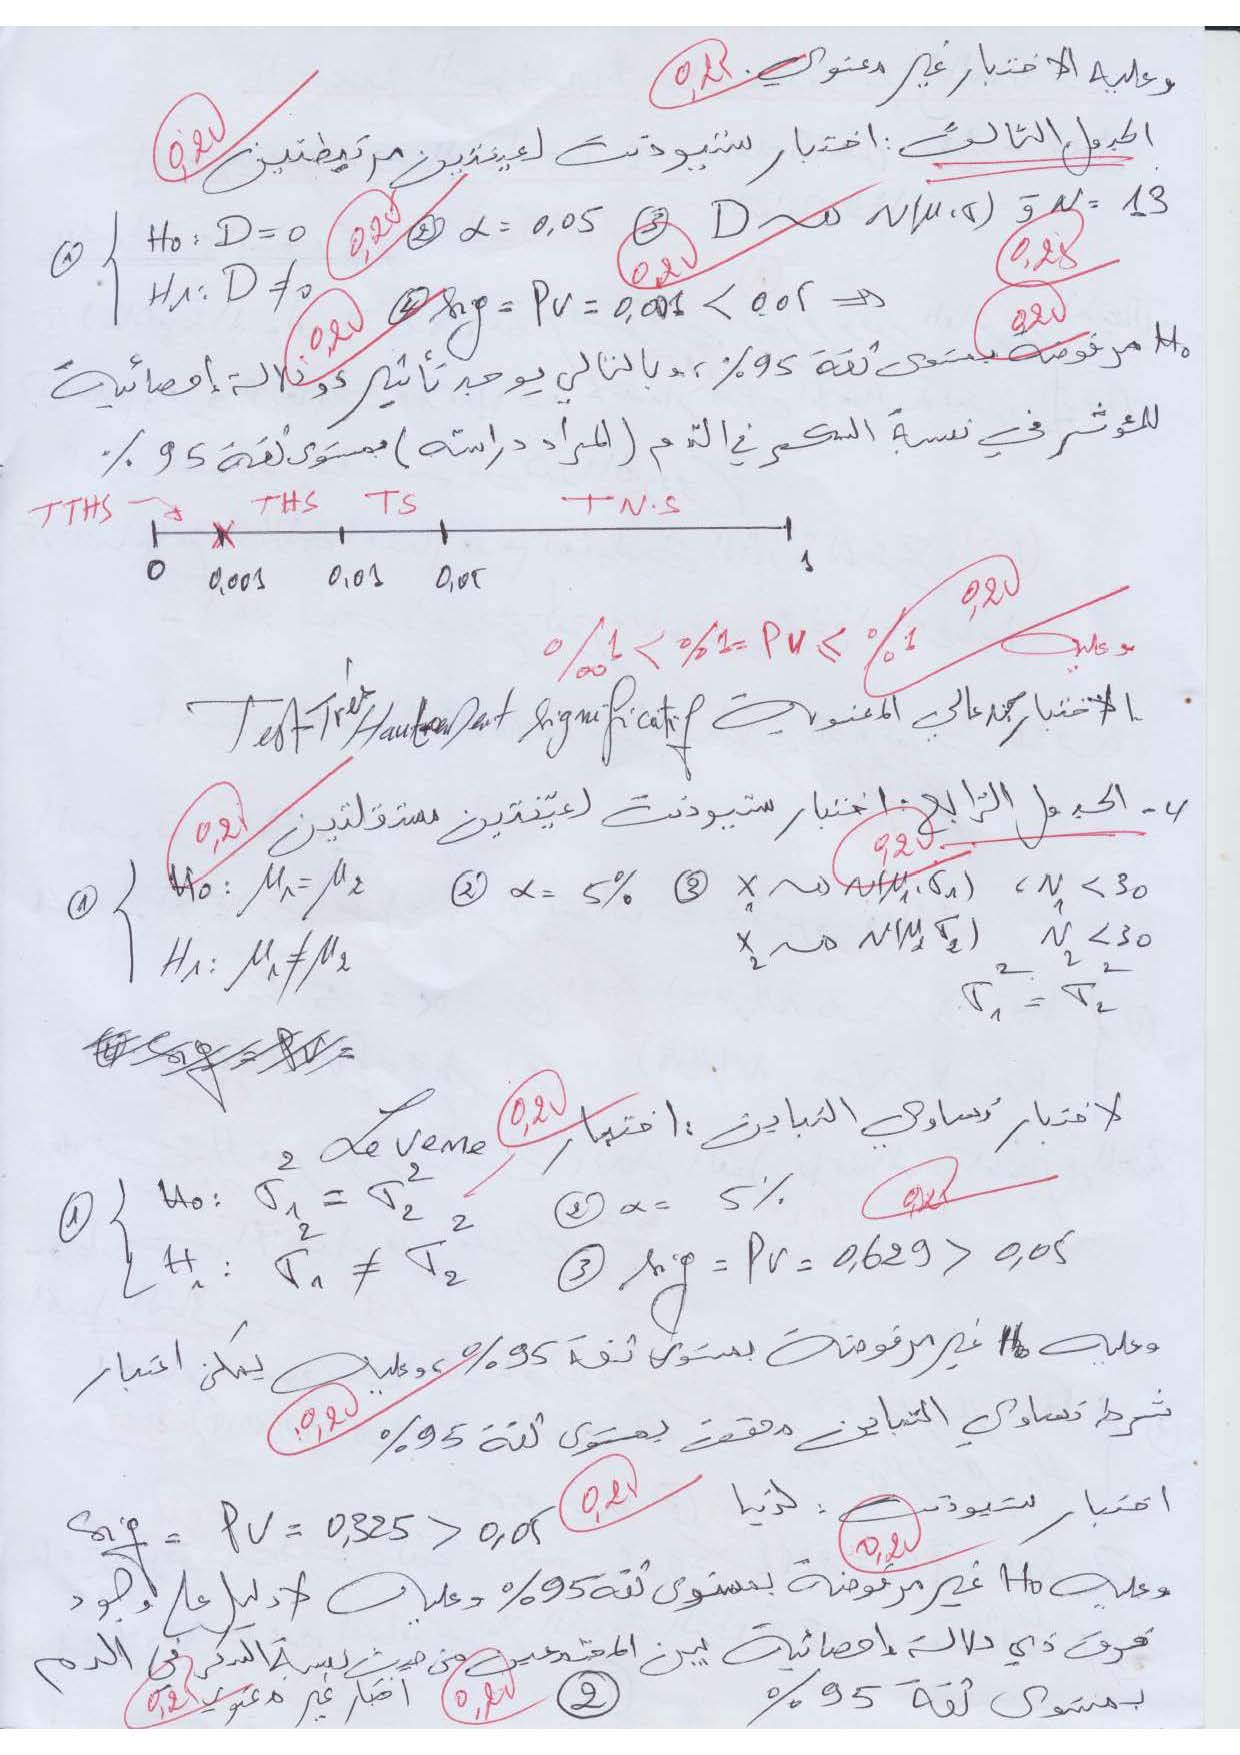 وعليه الاختبار غير معنوي. 0,25
الجدول الثالث: اختبار ستيودنت لعينتين مرتبطتين 0,25
① { H₀: D = 0 0,25 ② α = 0,05 ③ D ~> N(μ,σ) و N = 13
H₁: D ≠ 0 0,25 0,25
④ Sig = PV = 0,001 < 0.05 ⇒ 0,25 0,25
H₀ مرفوضة بمستوى ثقة 95%، وبالتالي يوجد تأثير ذو دلالة إحصائية
للمؤشر في نسبة السكر في الدم (المراد دراسته) بمستوى ثقة 95 %
TTHS THS TS T N.S
0 0,001 0,01 0,05 1
وعليه 1‰ < PV = 1‰ ≤ 1% 0,25
الاختبار جد عالي المعنوية Test Très Hautement Significatif
4- الجدول الرابع: اختبار ستيودنت لعينتين مستقلتين 0,25
① { H₀: μ₁ = μ₂ ② α = 5% ③ X₁ ~> N(μ₁,σ₁) ، N₁ < 30 0,25
H₁: μ₁ ≠ μ₂ X₂ ~> N(μ₂,σ₂) N₂ < 30
σ₁² = σ₂²
④ Sig = PV =
لاختبار تساوي التباين: اختبار Levene 0,25
① { H₀: σ₁² = σ₂² ② α = 5% 0,25
H₁: σ₁² ≠ σ₂² ③ Sig = PV = 0,629 > 0,05
وعليه H₀ غير مرفوضة بمستوى ثقة 95%، وعليه يمكن اعتبار
شرط تساوي التباين محقق بمستوى ثقة 95% 0,25
اختبار ستيودنت: لدينا Sig = PV = 0,325 > 0,05 0,25
0,25
وعليه H₀ غير مرفوضة بمستوى ثقة 95% وعليه لا دليل على وجود
فرق ذي دلالة إحصائية بين المجتمعين من حيث نسبة السكر في الدم
بمستوى ثقة 95% ② 0,25 اختبار غير معنوي 0,25